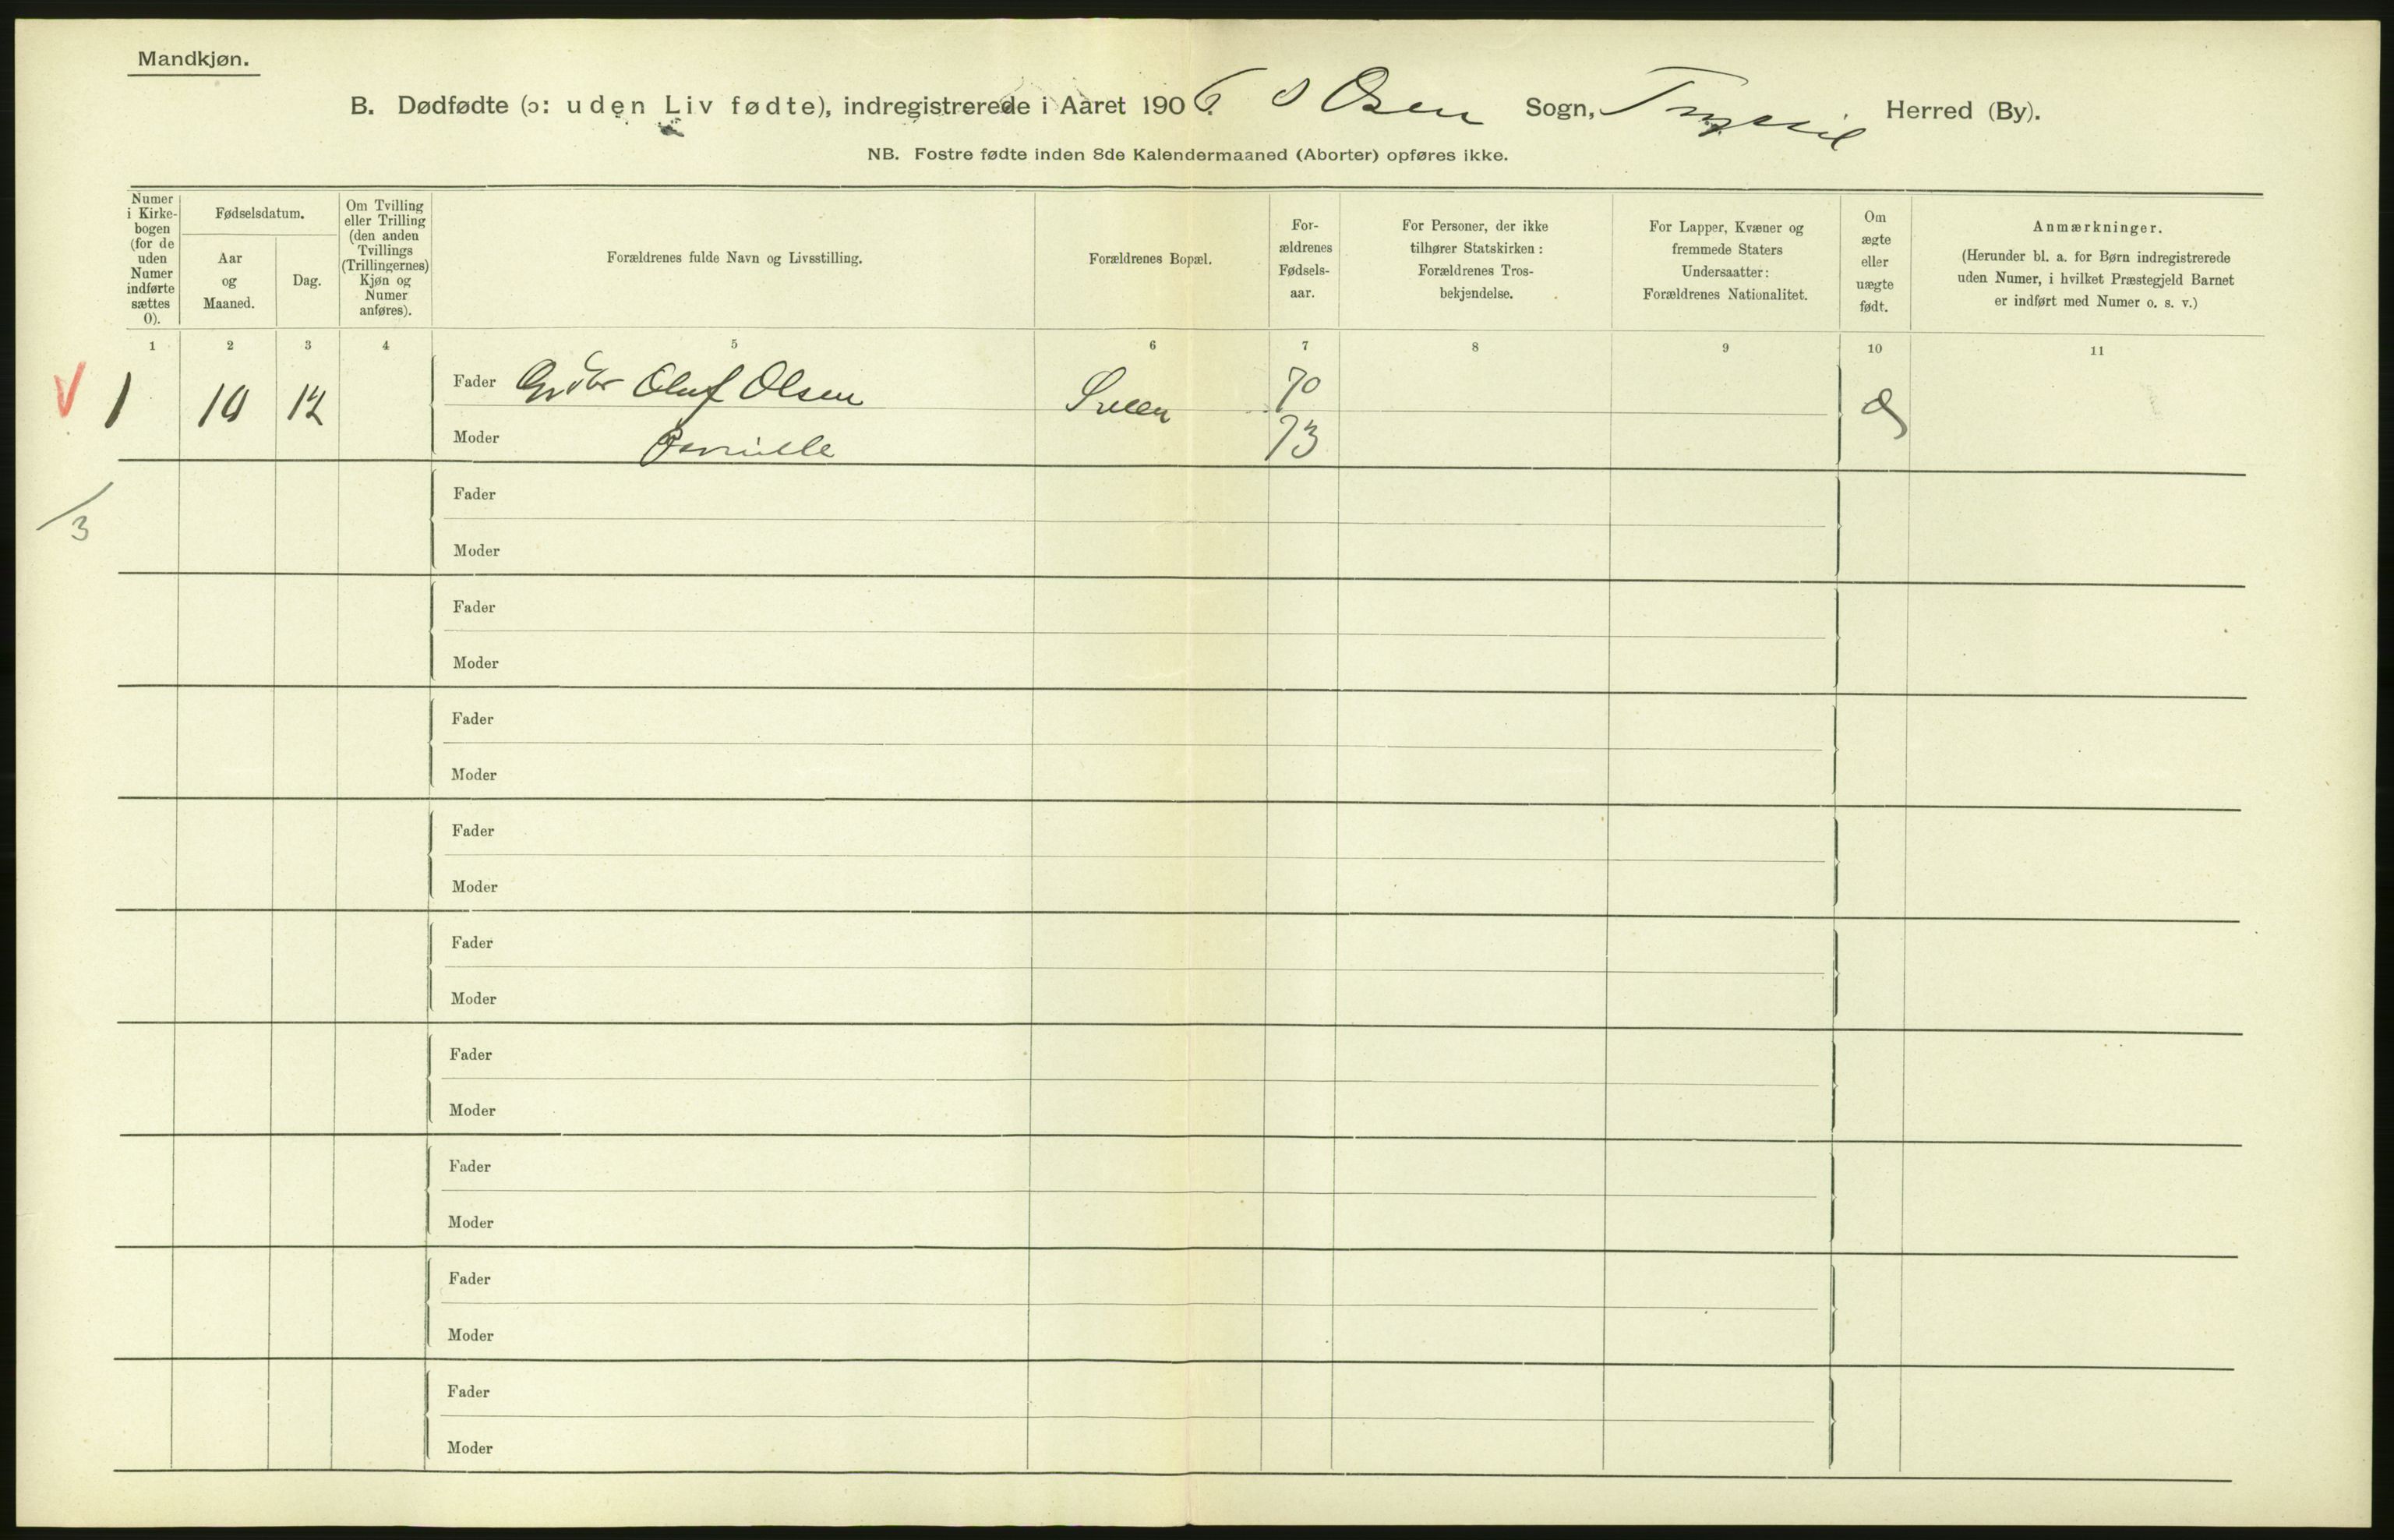 Mandkjøn.
B. Dødfødte (ɔ: uden Liv fødte), indregistrerede i Aaret 1906. S Osen Sogn, Trysil Herred (By).
NB. Fostre fødte inden 8de Kalendermaaned (Aborter) opføres ikke.
Numer i Kirkebogen (for de uden Numer indførte sættes 0).
Fødselsdatum.
Aar og Maaned.
Dag.
Om Tvilling eller Trilling (den anden Tvillings (Trillingernes) Kjøn og Numer anføres).
Forældrenes fulde Navn og Livsstilling.
Forældrenes Bopæl.
For-ældrenes Fødsels-aar.
For Personer, der ikke tilhører Statskirken: Forældrenes Tros-bekjendelse.
For Lapper, Kvæner og fremmede Staters Undersaatter: Forældrenes Nationalitet.
Om ægte eller uægte født.
Anmærkninger.
(Herunder bl. a. for Børn indregistrerede uden Numer, i hvilket Præstegjeld Barnet er indført med Numer o. s. v.)
1 2 3 4 5 6 7 8 9 10 11
V 1 10 12 Fader Oluf Olsen 70
Moder Pernille 73
/3
Fader
Moder
Fader
Moder
Fader
Moder
Fader
Moder
Fader
Moder
Fader
Moder
Fader
Moder
Fader
Moder
Fader
Moder